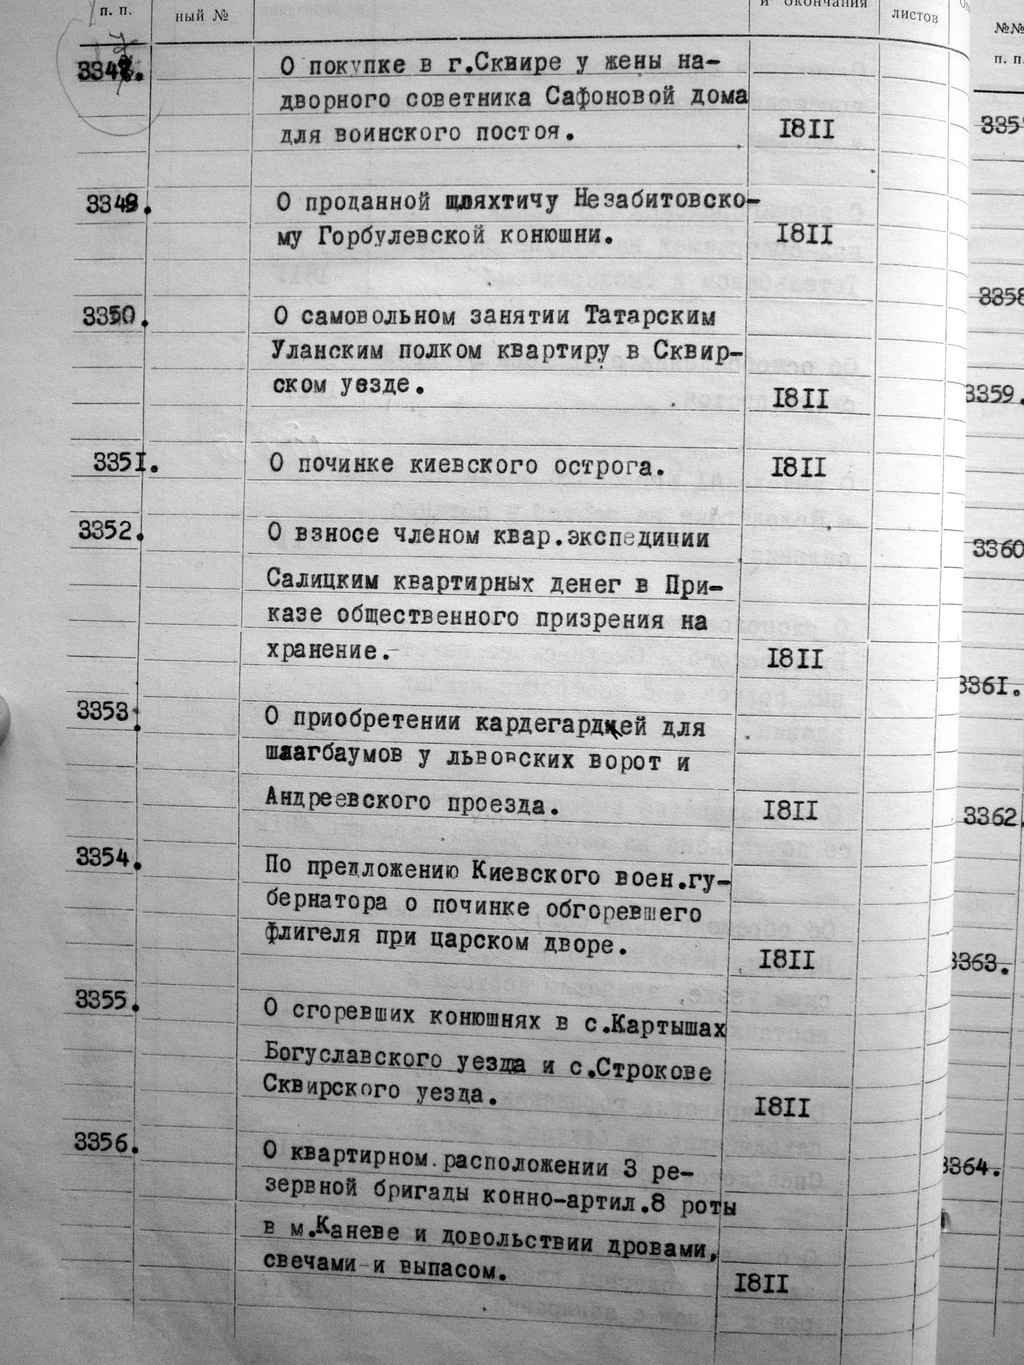 п. п.
ный №
и окончания
листов
№№
п. п.
3348.
О покупке в г.Сквире у жены на-
дворного советника Сафоновой дома
для воинского постоя.
I8II
3349.
О проданной шляхтичу Незабитовско-
му Горбулевской конюшни.
I8II
3350.
О самовольном занятии Татарским
Уланским полком квартиру в Сквир-
ском уезде.
I8II
3351.
О починке киевского острога.
I8II
3352.
О взносе членом квар.экспедиции
Салицким квартирных денег в При-
казе общественного призрения на
хранение.
I8II
3353.
О приобретении кардегардией для
шлагбаумов у львовских ворот и
Андреевского проезда.
I8II
3354.
По предложению Киевского воен.гу-
бернатора о починке обгоревшего
флигеля при царском дворе.
I8II
3355.
О сгоревших конюшнях в с.Картышах
Богуславского уезда и с.Строкове
Сквирского уезда.
I8II
3356.
О квартирном расположении 3 ре-
зервной бригады конно-артил.8 роты
в м.Каневе и довольствии дровами,
свечами и выпасом.
I8II
3358
3359.
3360
3361.
3362.
3363.
3364.